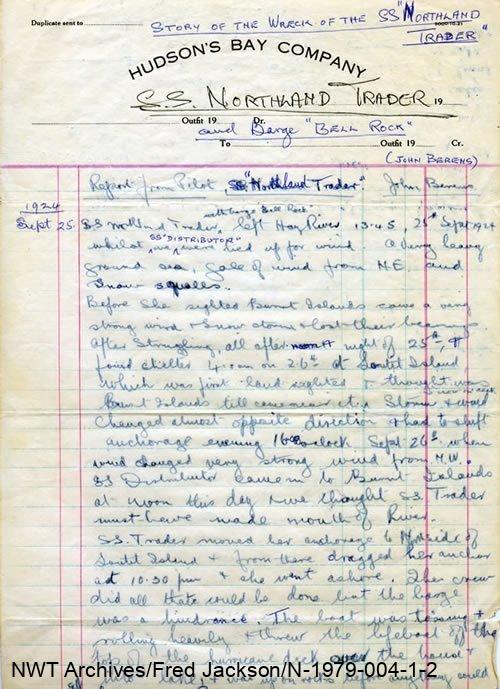 Duplicate sent to
STORY OF THE WRECK OF THE SS "NORTHLAND
TRADER"
HUDSON'S BAY COMPANY
S.S. NORTHLAND TRADER 19
Outfit 19 Dr.
and Barge "BELL ROCK"
To Outfit 19 Cr.
(JOHN BERENS)
Report from Pilot, SS "Northland Trader" John Berens
1924
with barge "Bell Rock"
Sept 25. SS Northland Trader, left Hay River, 13.45, 25th Sept 1924
SS "DISTRIBUTOR"
whilst we were tied up for wind a very heavy
ground sea, gale of wind from N.E. and
snow squalls.
Before she sighted Burnt Islands came a very
strong wind & snow storm & lost their bearings
After struggling, all after night of 25th,
found shelter 4.00am on 26th at Island
which was first land sighted & thought was
Burnt Islands till came near it. Storm & wind
changed almost opposite direction & had to shift
anchorage evening oclock Sept 26th when
wind changed very strong wind from N.W.
SS Distributor came in to Burnt Islands
at noon this day & we thought SS. Trader
must have made mouth of River.
S.S. Trader moved her anchorage to side of
Island & from there dragged her anchor
at 10.30 pm & she went ashore. The crew
did all that could be done but the barge
was a hindrance. The boat was tossing &
rolling heavily & threw the lifeboat off the
top of the hurricane deck over the
and was upon rocks before anything could
NWT Archives/Fred Jackson/N-1979-004-1-2